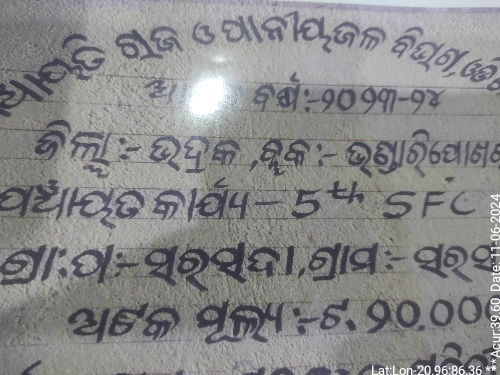 ପଞ୍ଚାୟତି ରାଜ ଓ ପାନୀୟଜଳ ବିଭାଗ,
ବର୍ଷ:-୨୦୨୩-୨୪
ଜିଲ୍ଲା:- ଭଦ୍ରକ ,ବ୍ଲକ:- ଭଣ୍ଡାରିପୋଖ
ପଞ୍ଚାୟତ କାର୍ଯ୍ୟ - 5th SFC
ଗ୍ରା:ପ:-ସରସଦା,ଗ୍ରାମ:- ସରସ
ଅଟକ ମୂଲ୍ୟ:-ଟ. ୨୦,୦୦୦
Lat:Lon-20,96:86.36 ***Acur:39.60 Date: 11-06-2024